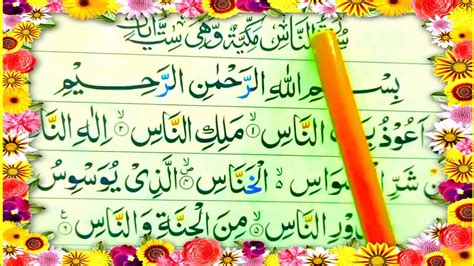 سُوْرَةُ النَّاسِ مَكِّيَّةٌ وَّهِيَ سِتُّ اٰيَاتٍ
بِسْمِ اللهِ الرَّحْمٰنِ الرَّحِيْمِ
اَعُوْذُ النَّاسِ ۙ‏﴿۱﴾ مَلِكِ النَّاسِ ۙ‏﴿۲﴾ اِلٰهِ النَّا
شَرِّ الْخَنَّاسِ الَّذِيْ يُوَسْوِسُ
النَّاسِ ۙ‏﴿۵﴾ مِنَ الْجِنَّةِ وَالنَّاسِ